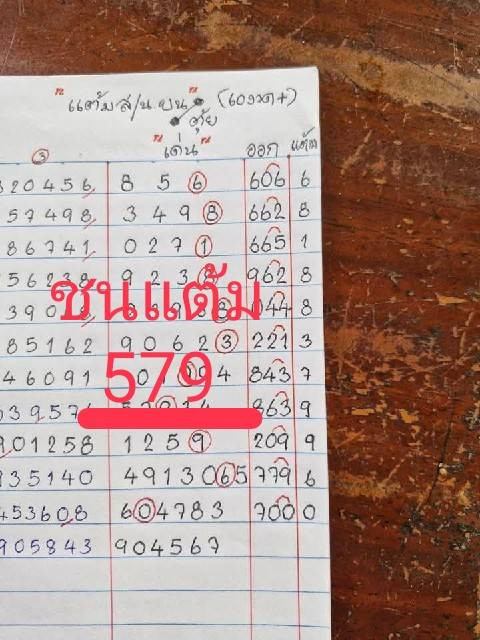 "แต้ม ส/น บน" (เอาวด+)
ตุ้ย
③ "เด่น" ออก แต้ม
320456 856 606 6
57498 3498 662 8
86741 0271 665 1
56238 9238 962 8
ชนแต้ม
3908 044 8
85162 90623 221 3
46091 843 7
579
863 9
901258 1259 209 9
935140 4913065 779 6
453608 604783 700 0
905843 904567